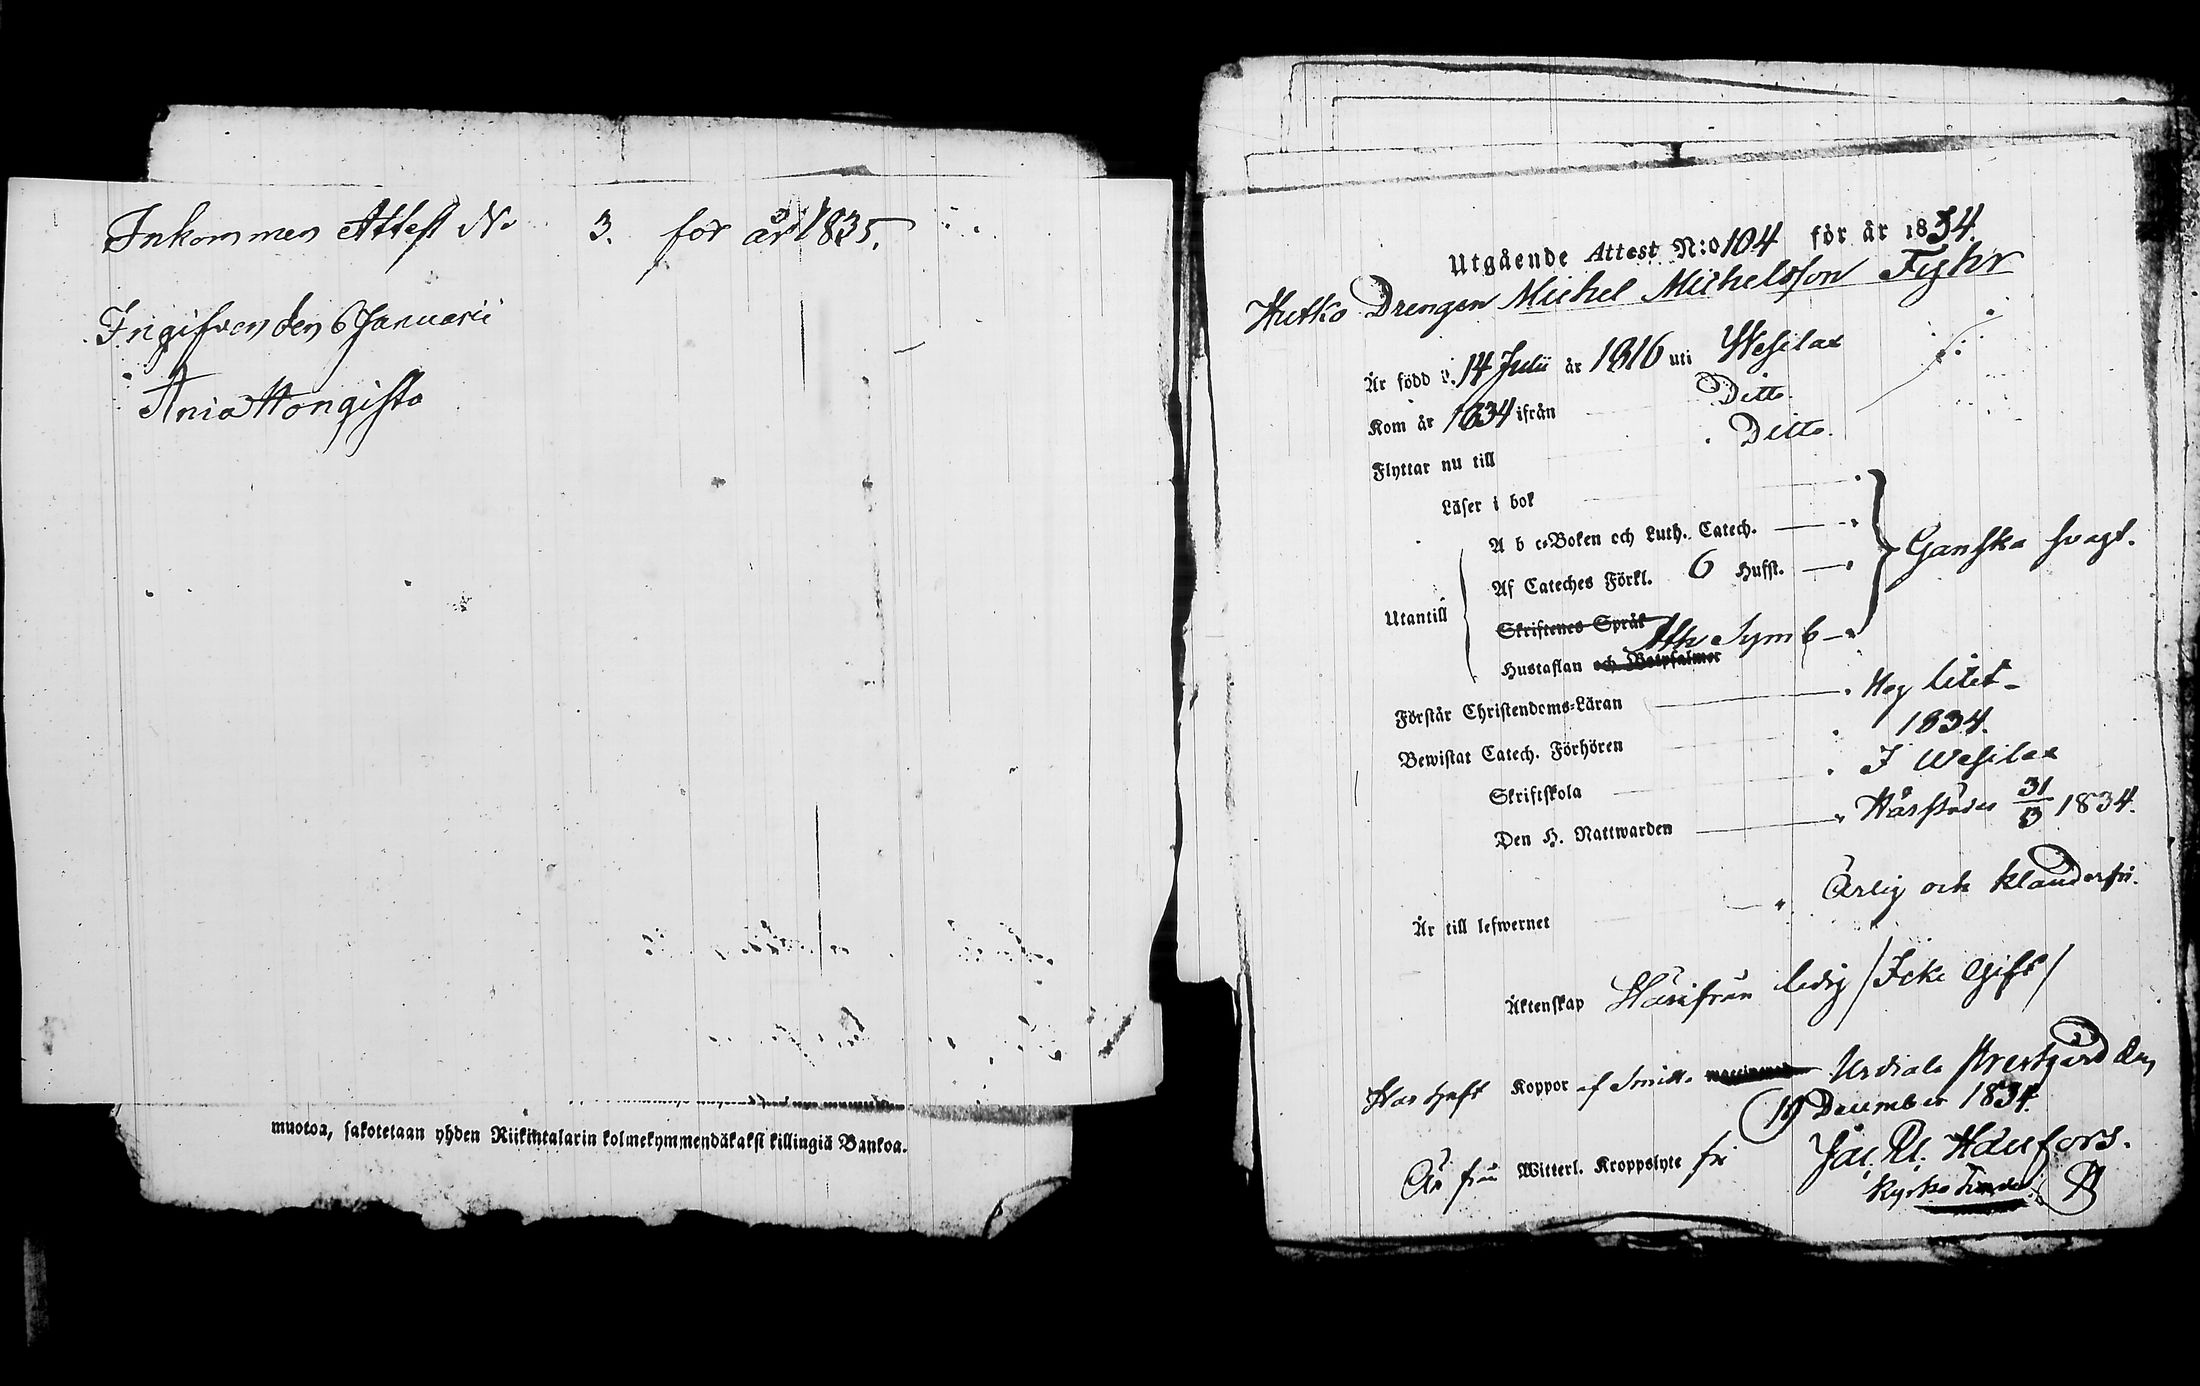 Inkommen Attest No 3. för år 1835.
Ingifven den 6 Januarii
Ania Hongisto
muotoa, sakotetaan yhden Riikintalarin kolmekymmendäkaksi killingiä Bankoa.
Utgående Attest N:o 104 för år 1834.
Hutko Drengen Michel Michelsson Fyhr
Är född d. 14 Julii år 1816 uti Wesilax
Kom år 1834 ifrån Ditto.
Flyttar nu till Ditto.
Läser i bok
A b c-Boken och Luth. Catech.
Af Cateches Förkl. 6 Hufst.
Ganska svagt.
Utantill
Skriftenes Språk Ath Symb
Hustaflan och Botpsalmer
Förstår Christendoms-Läran Neg litet
Bewistat Catech. Förhören 1834.
Skriftskola I Wesilax
Den H. Nattwarden Härstädes 31/3 1834.
Är till lefwernet Ärlig och klanderfri.
Äktenskap Härifrån ledig /Icke Gift/
Har haft Koppor af Smitt. Urdiala Prestgård den
19 December 1834.
Är från Witterl. Kroppslyte fri